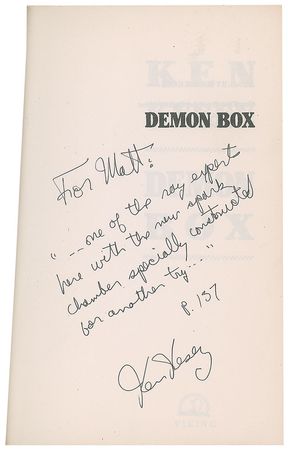 KEN
KESEY
DEMON BOX
DEMON
BOX
For Matt:
"--one of the ray expert
here with the new spark
chamber specially constructed
for another try..."
p. 137
Ken Kesey
VIKING